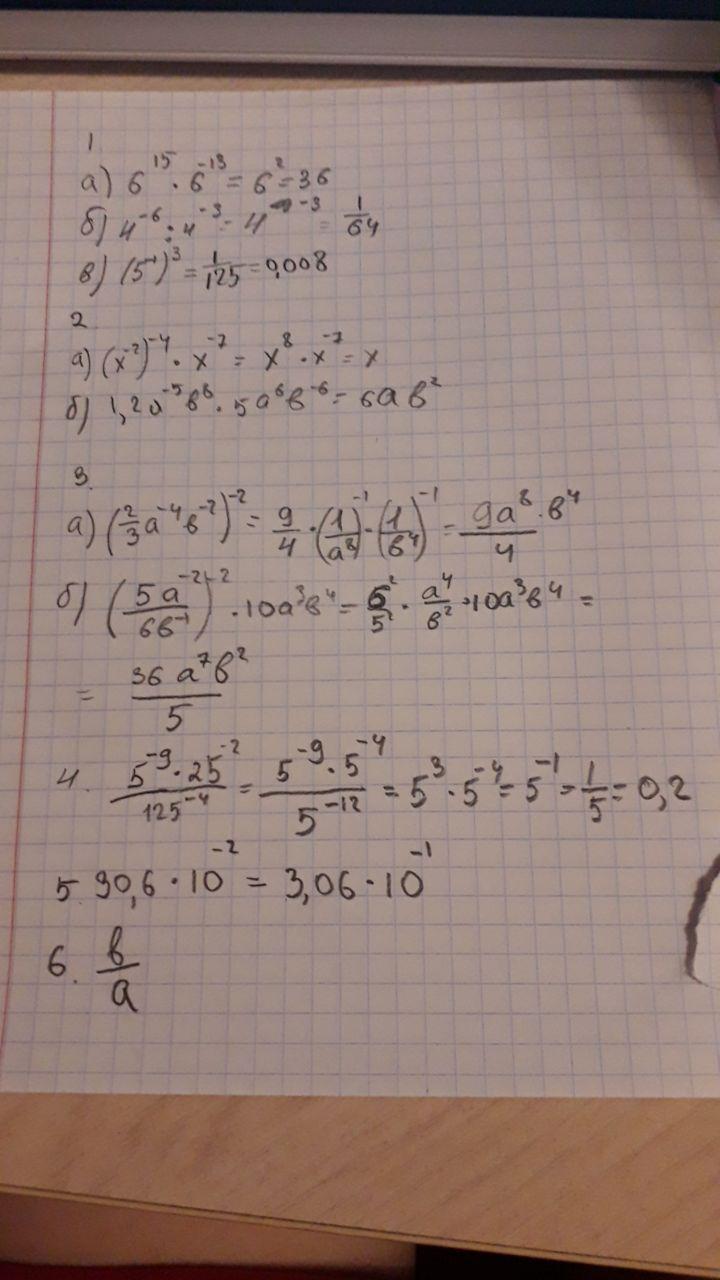 1
а) 6¹⁵ · 6⁻¹³ = 6² = 36
б) 4⁻⁶ : 4⁻³ = 4⁻³ = 1/64
в) (5⁻¹)³ = 1/125 = 0,008
2
а) (x⁻²)⁻⁴ · x⁻⁷ = x⁸ · x⁻⁷ = x
б) 1,2a⁻⁵в⁸ · 5a⁶в⁻⁶ = 6aв²
3.
а) (2/3 a⁻⁴в⁻²)⁻² = 9/4 · (1/a⁸)⁻¹ · (1/в⁴)⁻¹ = 9a⁸ · в⁴/4
б) (5a⁻²/6в⁻¹)⁻² · 10a³в⁴ = 6²/5² · a⁴/в² · 10a³в⁴ =
= 36 a⁷в²/5
4. 5⁻⁹ · 25⁻²/125⁻⁴ = 5⁻⁹ · 5⁻⁴/5⁻¹² = 5³ · 5⁻⁴ = 5⁻¹ = 1/5 = 0,2
5. 30,6 · 10⁻² = 3,06 · 10⁻¹
6. в/a